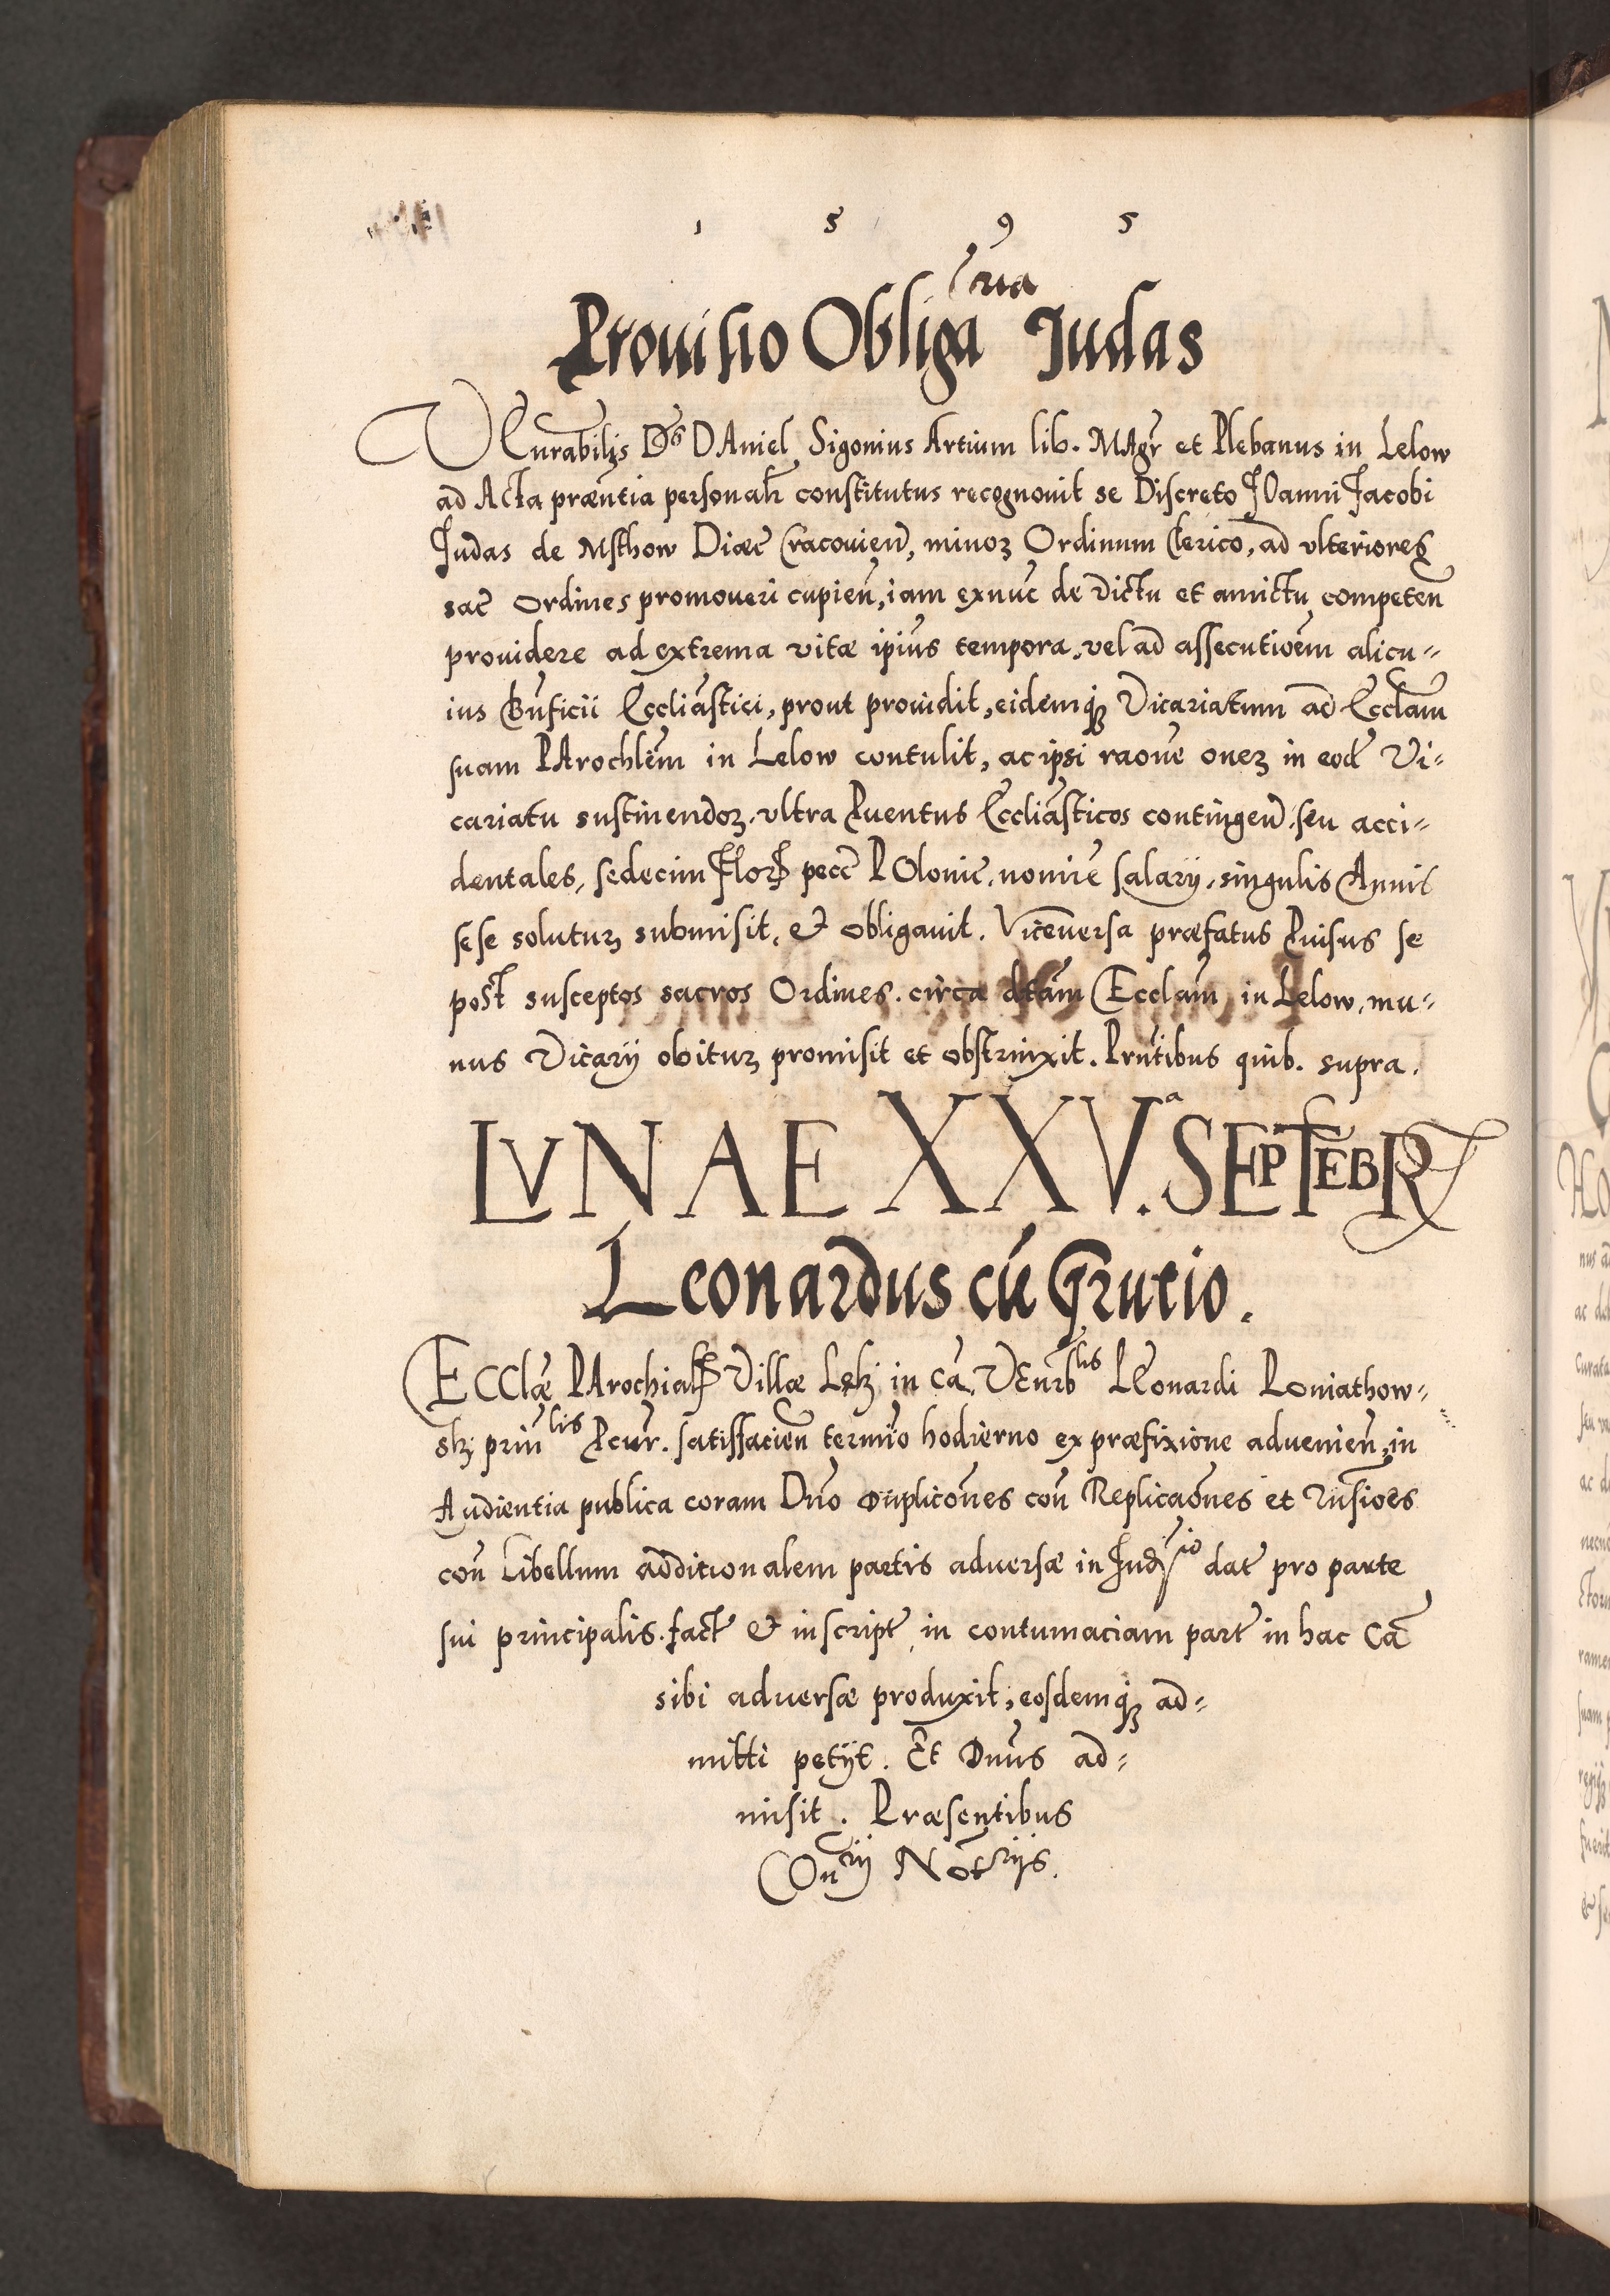 1 5 9 5
Prouisio Obliga(ria Judas
VEnrabilis Dns DAniel Sigonius Artium lib. MAgr et Plebanus in Lelow
ad Acta præntia personalr constitutus recognouit se Discreto JOanni Jacobi
Judas de Msthow Diæc Cracouien, minoꝝ Ordinum Clerico, ad vlteriores
sac Ordines promoueri cupien, iam exnuc de victu et amictu competen
prouidere ad extrema vitæ ipius tempora, vel ad assecutioem alicu-
ius Bnficii Eccliastici, prout prouidit, eidemqꝫ Vicariatum ad Ecclam
suam PArochlem in Lelow contulit, ac ipsi raone oneꝝ in eod Vi-
cariatu sustinendoꝝ vltra Puentus Eccliasticos contingen seu acci-
dentales, sedecim Flor pecc POlonic, nomine salarij, singulis Annis
sese soluturꝫ submisit, & obligauit. Viceuersa præfatus Puisus se
post susceptos sacros Ordines circa dctam Ecclam in Lelow, mu-
nus Vicarij obiturꝫ promisit et obstrinxit. Prntibus quib. supra.
LVNAE XXV.a SEPTEBR
Leonardus cu Grutio.
ECClæ PArochial Villæ Lelꝫ in Ca VEnrblis LEonardi Poniathow-
skꝫ prinlis Pcur. satisfacien termio hodierno ex præfixione aduenien, in
Audientia publica coram Dno Duplicones con Replicaones et Rnsioes
con Libellum additionalem partis aduersæ in Judio dat pro parte
sui principalis fact & inscript in contumaciam part in hac Ca
sibi aduersæ produxit, eosdemqꝫ ad-
mitti petijt. Et Dnus ad-
misit. Præsentibus
COnrij Notrijs.